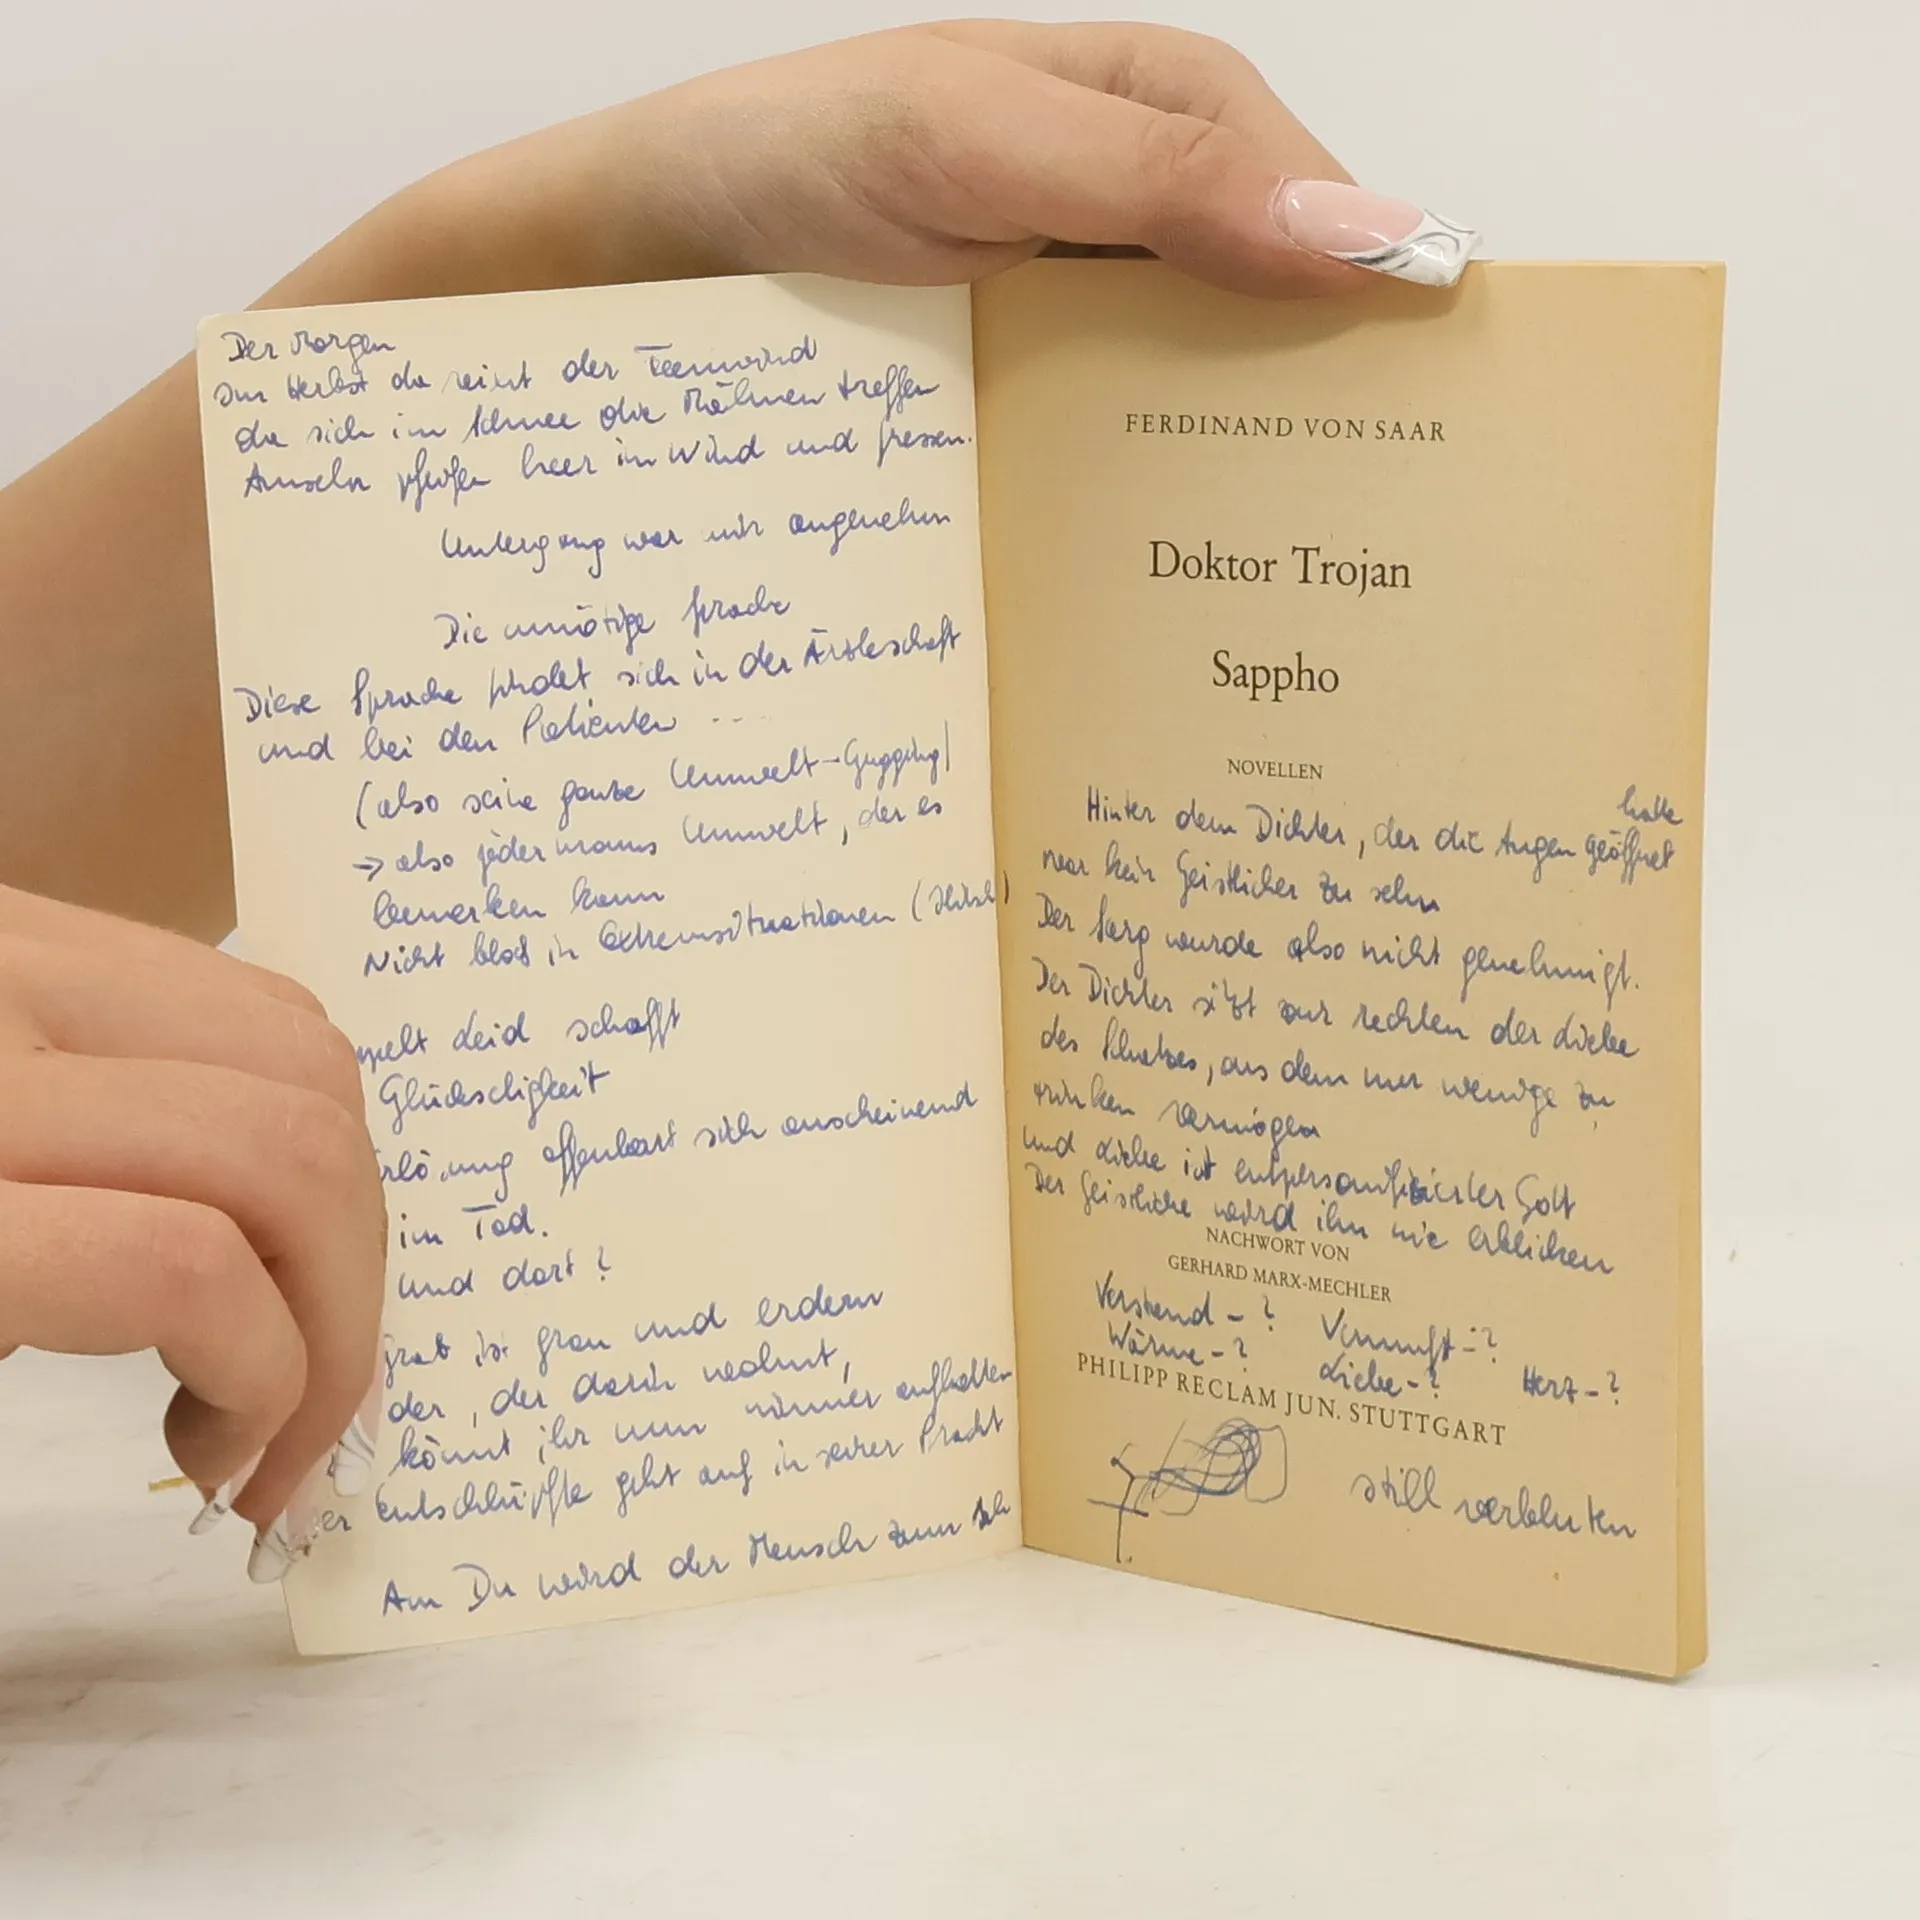 Der Morgen
Im Herbst da reint der Feenwind
da sich im Schnee die Mähnen treffen
Amseln pfeifen heer im Wind und fressen.
Untergang war mir angenehm
Die unnötige Sprache
Diese Sprache findet sich in der Ärzteschaft
und bei den Patienten ---
(also seine ganze Umwelt-Gugging)
→ also jedermanns Umwelt, der es
bemerken kann
Nicht bloß in Extremsituationen
Leid schafft
Glückseligkeit
offenbart sich anscheinend
im Tod.
Und dort?
ist grau und erdern
der, der darin wohnt,
könnt ihr nun nimmer aufhalten
entschlüpfte geht auf in seiner Pracht
Am Du wird der Mensch zum Ich
FERDINAND VON SAAR
Doktor Trojan
Sappho
NOVELLEN
hatte
Hinter dem Dichter, der die Augen geöffnet
war kein Geistlicher zu sehn
Der Sarg wurde also nicht genehmigt.
Der Dichter sitzt zur rechten der Liebe
des Schatzes, aus dem nur wenige zu
trinken vermögen
und Liebe ist entpersonifizierter Gott
Der Geistliche wird ihn nie erblicken
NACHWORT VON
GERHARD MARX-MECHLER
Verstand - ? Vernunft - ?
Wärme - ? Liebe - ? Herz - ?
PHILIPP RECLAM JUN. STUTTGART
still verbluten